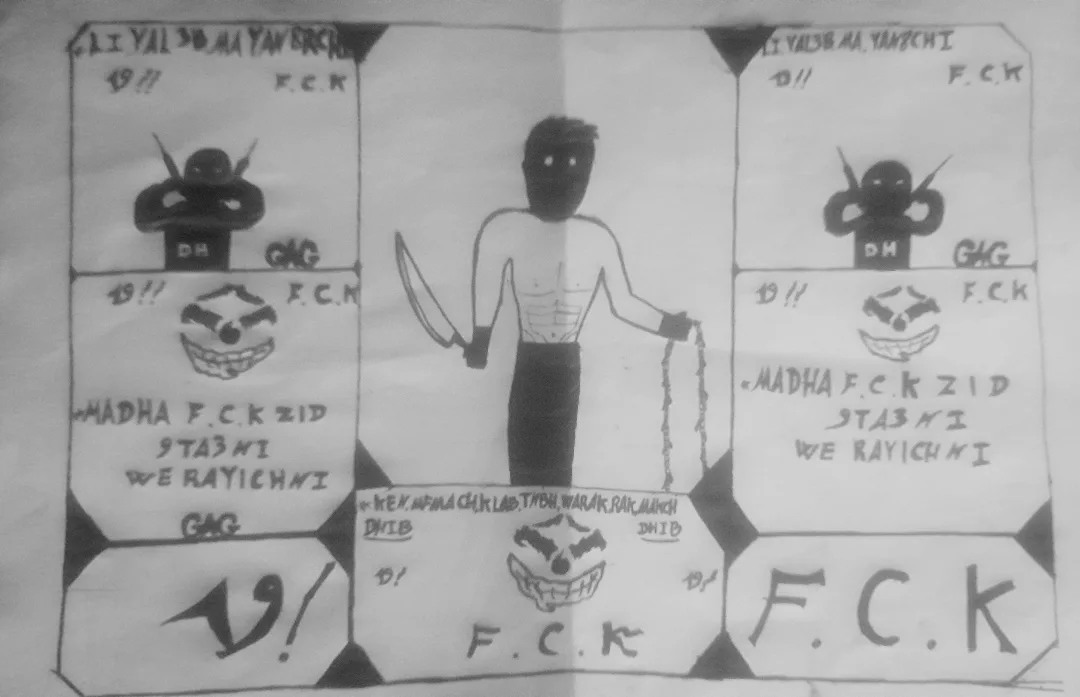 LI YAL3B, MA YANERCHI
19!! F.C.K
DH
GAG
19!! F.C.K
*MADHA F.C.K ZID
9TA3NI
WE RAYICHNI
GAG
19!
*KEN.MEMACH.KLAB,TNBH,WARAK.RAK,MAKCH
DHIB DHIB
19! 19!
F.C.K
LI YAL3B MA, YAN8CHI
19!! F.C.K
DH
GAG
19!! F.C.K
*MADHA F.C.K ZID
9TA3NI
WE RAYICHNI
F.C.K